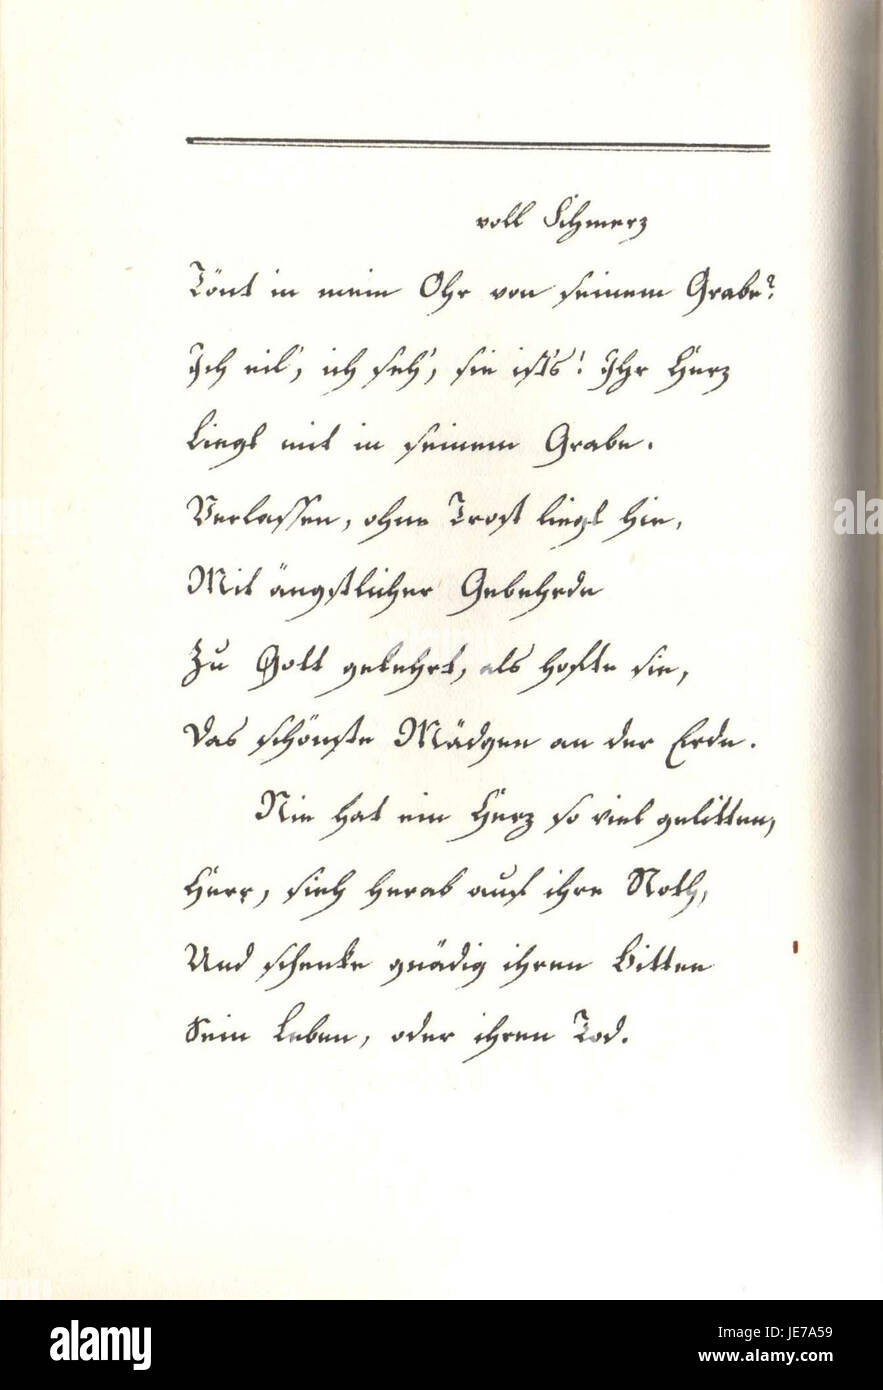 voll Schmerz
Tönt in mein Ohr von seinem Grabe?
Ich eil', ich seh', sie ist's! Ihr Herz
Liegt mit in seinem Grabe.
Verlassen, ohne Trost liegt hie,
Mit ängstlicher Gebehrde
Zu Gott gekehrt, als hofte sie,
Das schönste Mädgen an der Erde.
Nie hat ein Herz so viel gelitten,
Herr, sieh herab auf ihre Noth,
Und schenke gnädig ihren Bitten
Sein Leben, oder ihren Tod.
alamy
Image ID: JE7A59
www.alamy.com